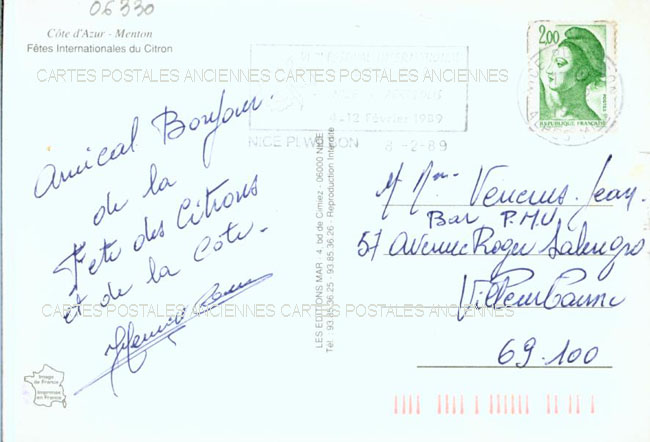 06330
Côte d'Azur - Menton
Fêtes Internationales du Citron
2,00
REPUBLIQUE FRANÇAISE
CARTES POSTALES ANCIENNES CARTES POSTALES ANCIENNES
4-12 Février 1989
NICE PL WILSON 8-2-89
Amical Bonjour.
de la
Fete des Citrons
et de la Côte.
LES EDITIONS MAR - 4, bd de Cimiez - 06000 NICE
Tél.: 93.85.36.25 - 93.85.36.26 - Reproduction Interdite
M Mme Venerus Jean
Bar P.M.U
57 Avenue Roger Salengro
Villeurbanne
69.100
CARTES POSTALES ANCIENNES CARTES POSTALES ANCIENNES
Image
de France
Imprimée
en France